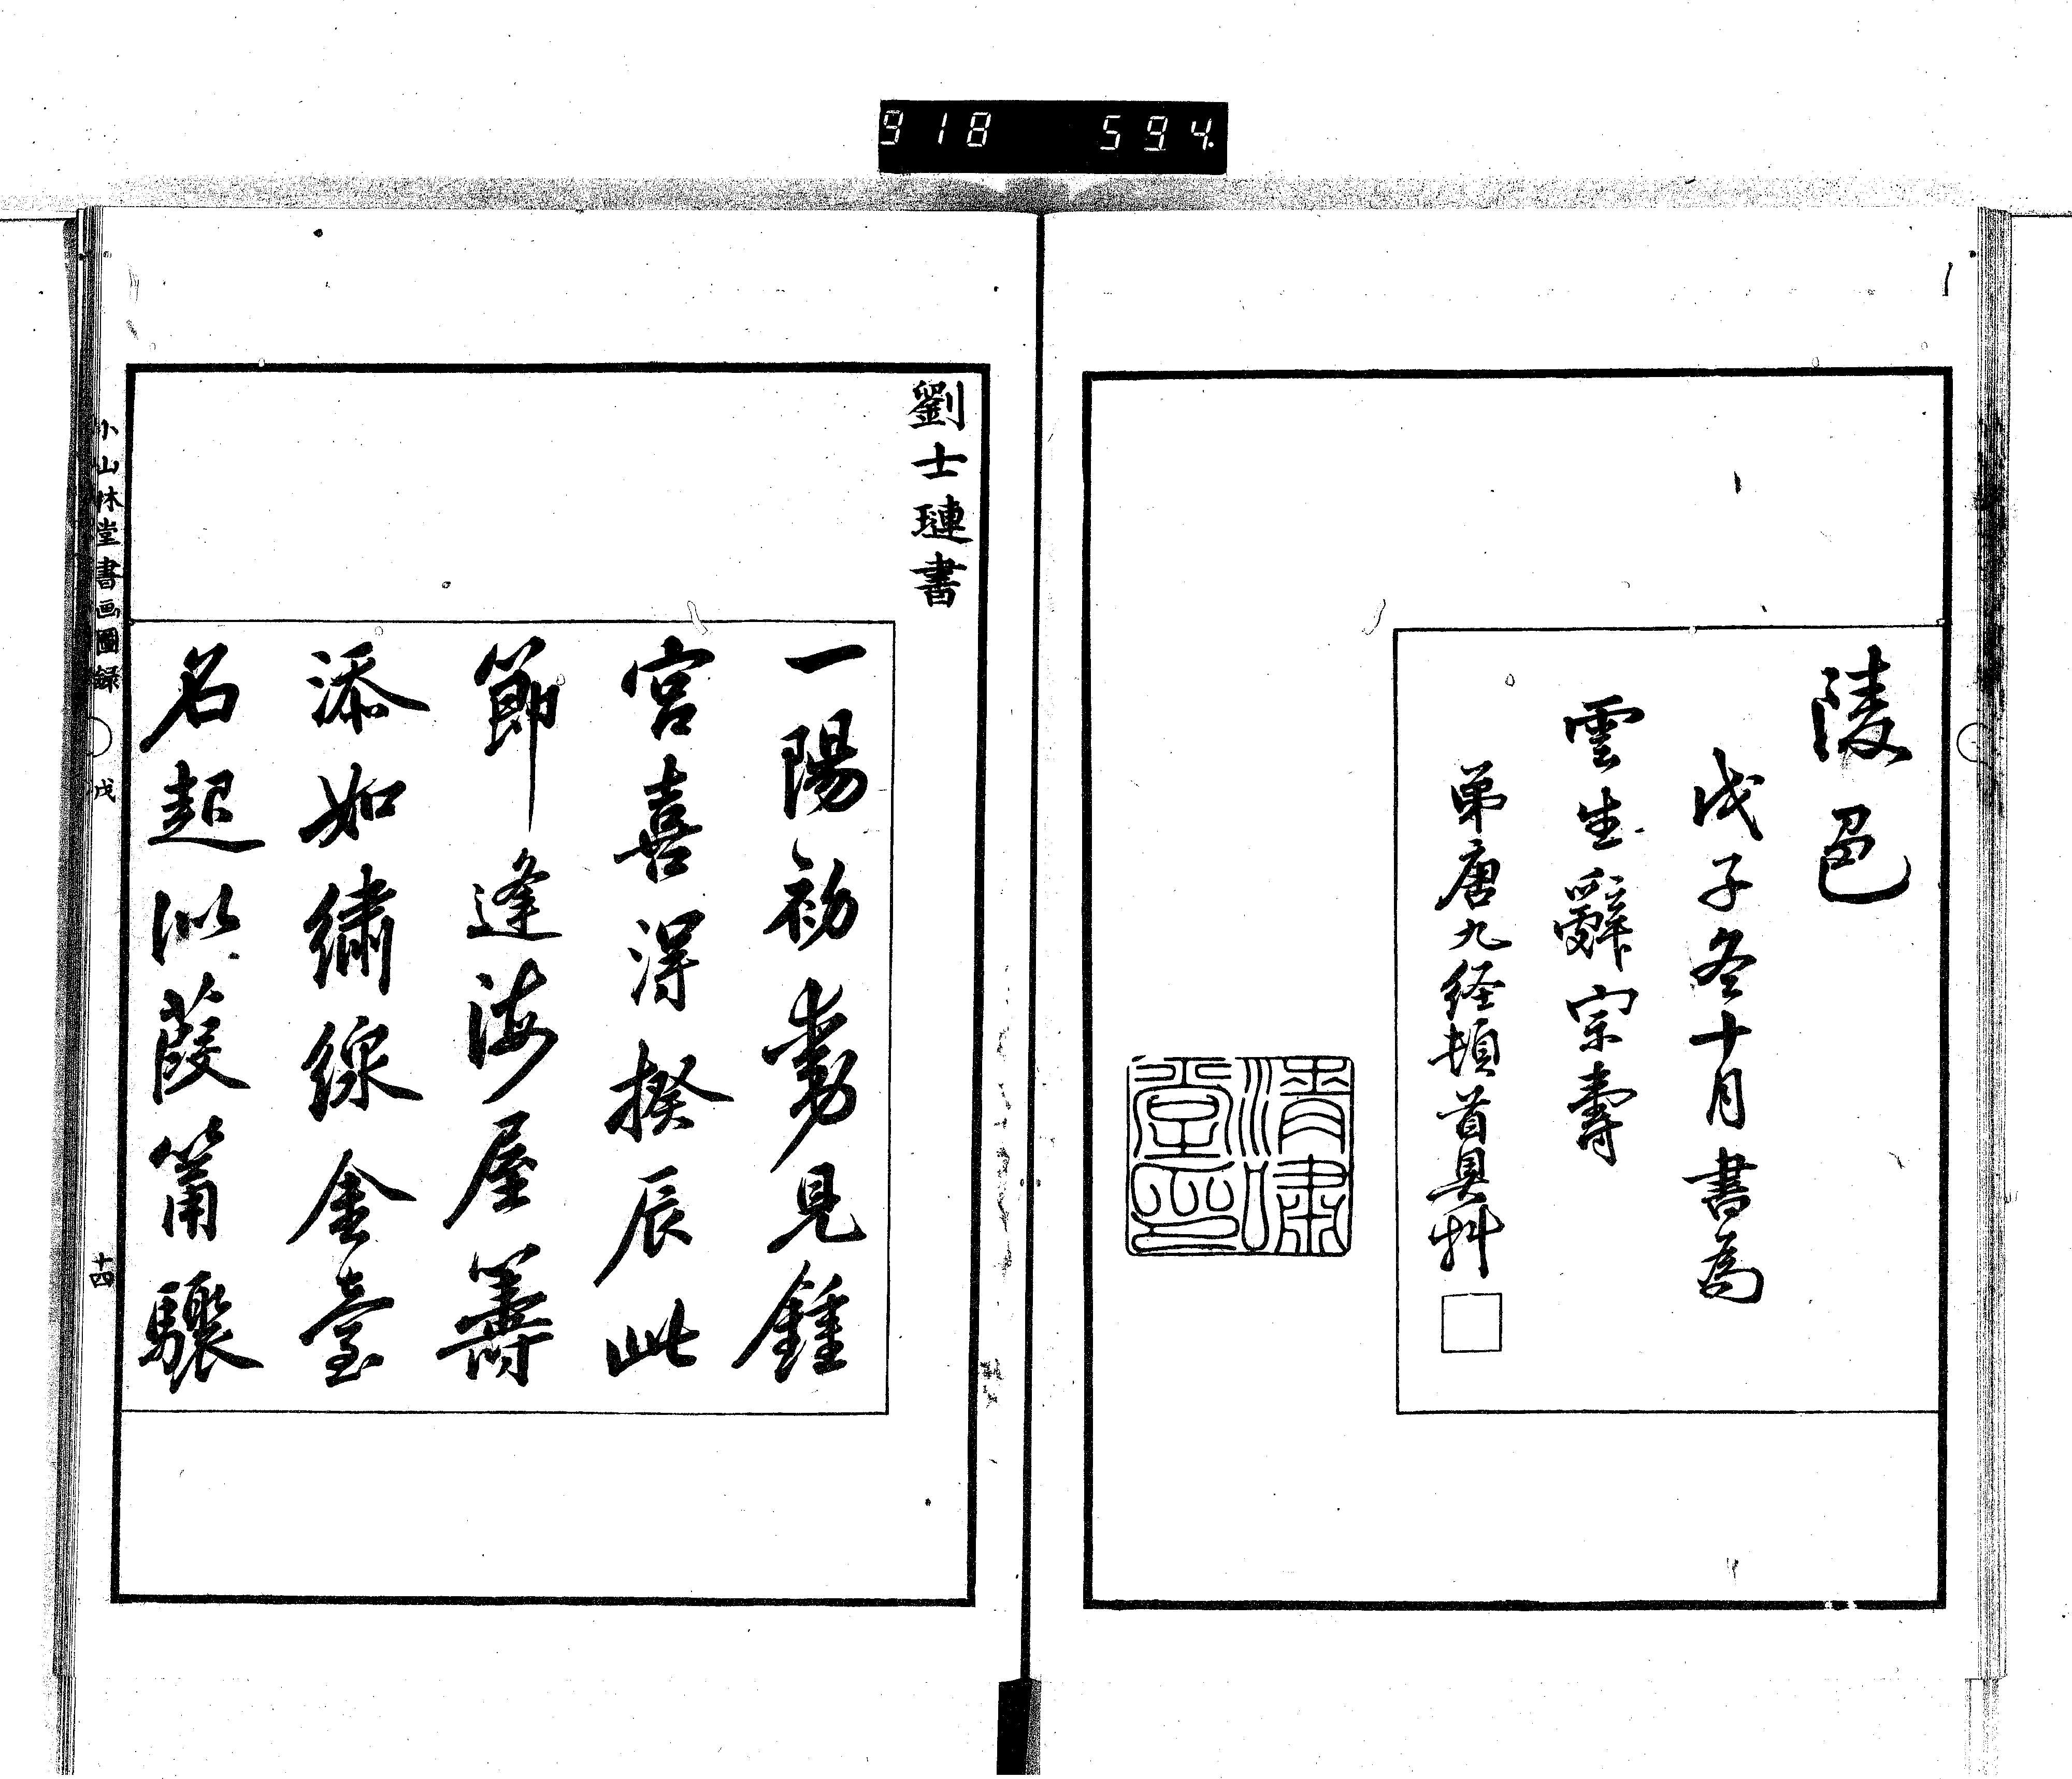 918 594.
陵邑
戊子冬十月書為
雲生辭宗壽
弟唐九経頓首具艸
清嘯
堂印
劉士璉書
一陽初動見鍾
宮喜得揆辰此
節逢海屋籌
添如繡線金臺
名起似葭莆驟
小山林堂書画圖録
戊
十四